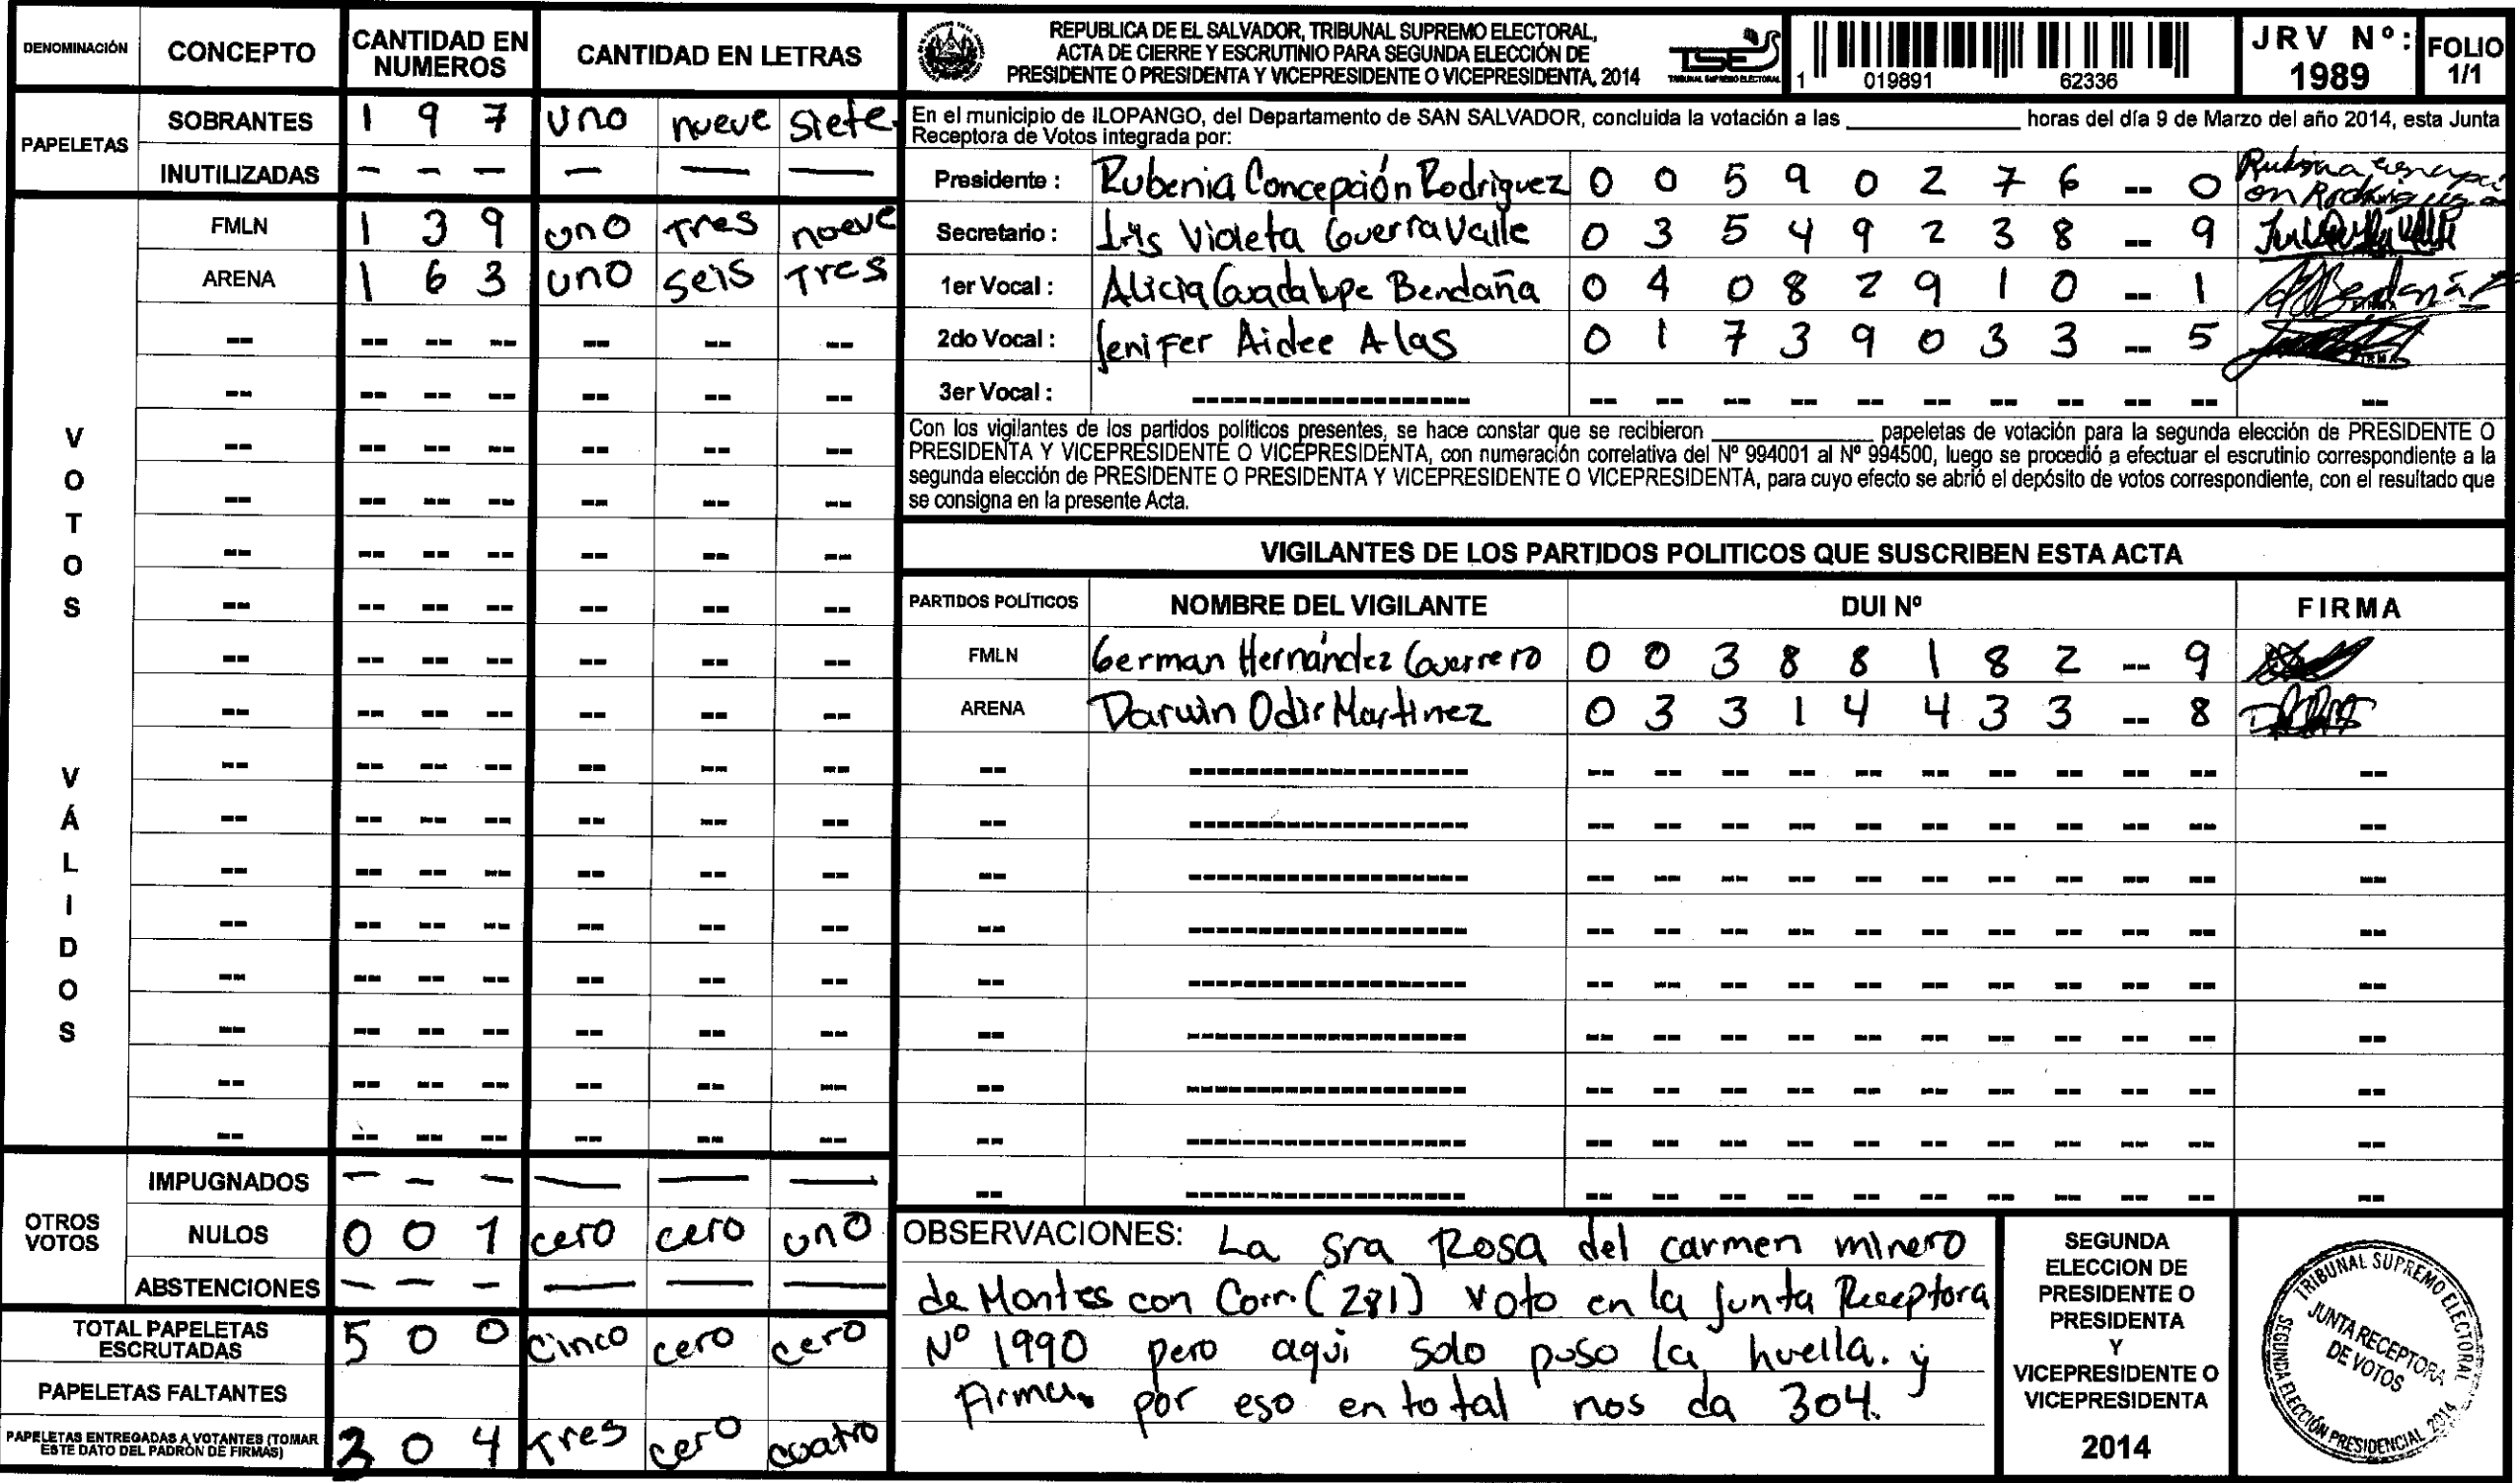 DENOMINACIÓN CONCEPTO CANTIDAD EN NUMEROS CANTIDAD EN LETRAS
PAPELETAS
SOBRANTES 1 9 7 uno nueve siete
INUTILIZADAS - - - - - -
VOTOS VÁLIDOS
FMLN 1 3 9 uno tres nueve
ARENA 1 6 3 uno seis tres
OTROS VOTOS
IMPUGNADOS - - - - - -
NULOS 0 0 1 cero cero uno
ABSTENCIONES - - - - - -
TOTAL PAPELETAS ESCRUTADAS 5 0 0 cinco cero cero
PAPELETAS FALTANTES
PAPELETAS ENTREGADAS A VOTANTES (TOMAR ESTE DATO DEL PADRÓN DE FIRMAS) 3 0 4 tres cero cuatro
REPUBLICA DE EL SALVADOR, TRIBUNAL SUPREMO ELECTORAL,
ACTA DE CIERRE Y ESCRUTINIO PARA SEGUNDA ELECCIÓN DE
PRESIDENTE O PRESIDENTA Y VICEPRESIDENTE O VICEPRESIDENTA, 2014
TSE
TRIBUNAL SUPREMO ELECTORAL
1 019891 62336
JRV Nº: 1989
FOLIO 1/1
En el municipio de ILOPANGO, del Departamento de SAN SALVADOR, concluida la votación a las ____________ horas del día 9 de Marzo del año 2014, esta Junta
Receptora de Votos integrada por:
Presidente : Rubenia Concepción Rodriguez 0 0 5 9 0 2 7 6 -- 0
Secretario : Iris Violeta Guerra Valle 0 3 5 4 9 2 3 8 -- 9
1er Vocal : Alicia Guadalupe Bendaña 0 4 0 8 2 9 1 0 -- 1
2do Vocal : Jenifer Aidee Alas 0 1 7 3 9 0 3 3 -- 5
3er Vocal : --------------------
Con los vigilantes de los partidos políticos presentes, se hace constar que se recibieron ____________ papeletas de votación para la segunda elección de PRESIDENTE O
PRESIDENTA Y VICEPRESIDENTE O VICEPRESIDENTA, con numeración correlativa del Nº 994001 al Nº 994500, luego se procedió a efectuar el escrutinio correspondiente a la
segunda elección de PRESIDENTE O PRESIDENTA Y VICEPRESIDENTE O VICEPRESIDENTA, para cuyo efecto se abrió el depósito de votos correspondiente, con el resultado que
se consigna en la presente Acta.
VIGILANTES DE LOS PARTIDOS POLITICOS QUE SUSCRIBEN ESTA ACTA
PARTIDOS POLÍTICOS NOMBRE DEL VIGILANTE DUI Nº FIRMA
FMLN German Hernández Guerrero 0 0 3 8 8 1 8 2 -- 9
ARENA Darwin Odir Martinez 0 3 3 1 4 4 3 3 -- 8
OBSERVACIONES: La sra Rosa del carmen minero
de Montes con Corr. (281) voto en la junta Receptora
Nº 1990 pero aqui solo puso la huella. y
firma. por eso en total nos da 304.
SEGUNDA
ELECCION DE
PRESIDENTE O
PRESIDENTA
Y
VICEPRESIDENTE O
VICEPRESIDENTA
2014
TRIBUNAL SUPREMO ELECTORAL
JUNTA RECEPTORA
DE VOTOS
SEGUNDA ELECCIÓN PRESIDENCIAL 2014